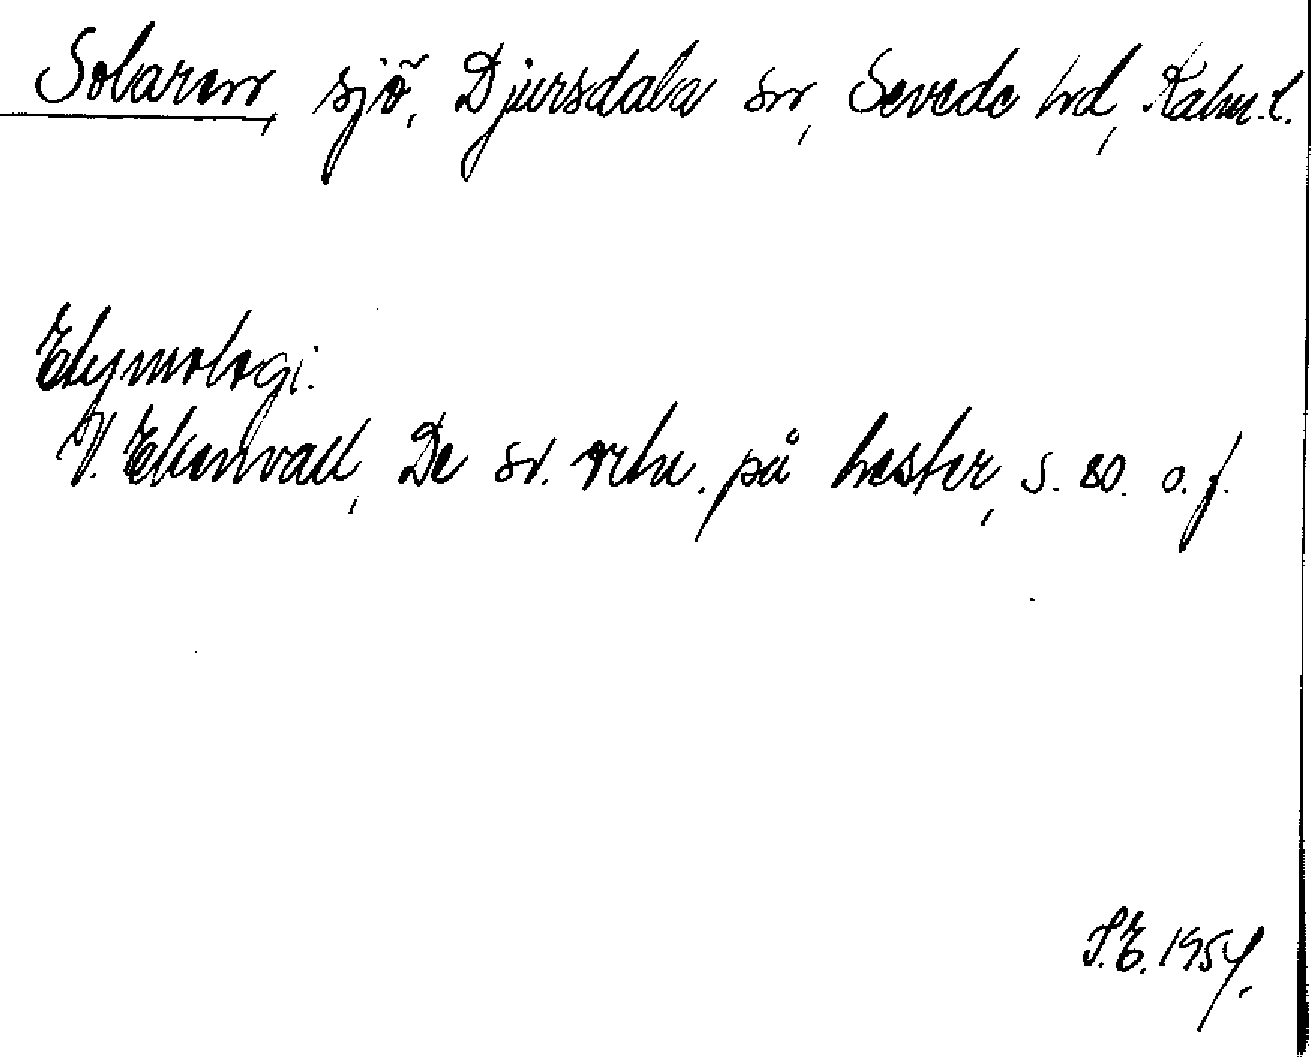 Solaren, sjö, Djursdala sn, Sevede hd, Kalm. l.
Etymologi.
V. Ekenvall, De sv. ortn. på hester, s. 80. o. f.
S.E. 1954.